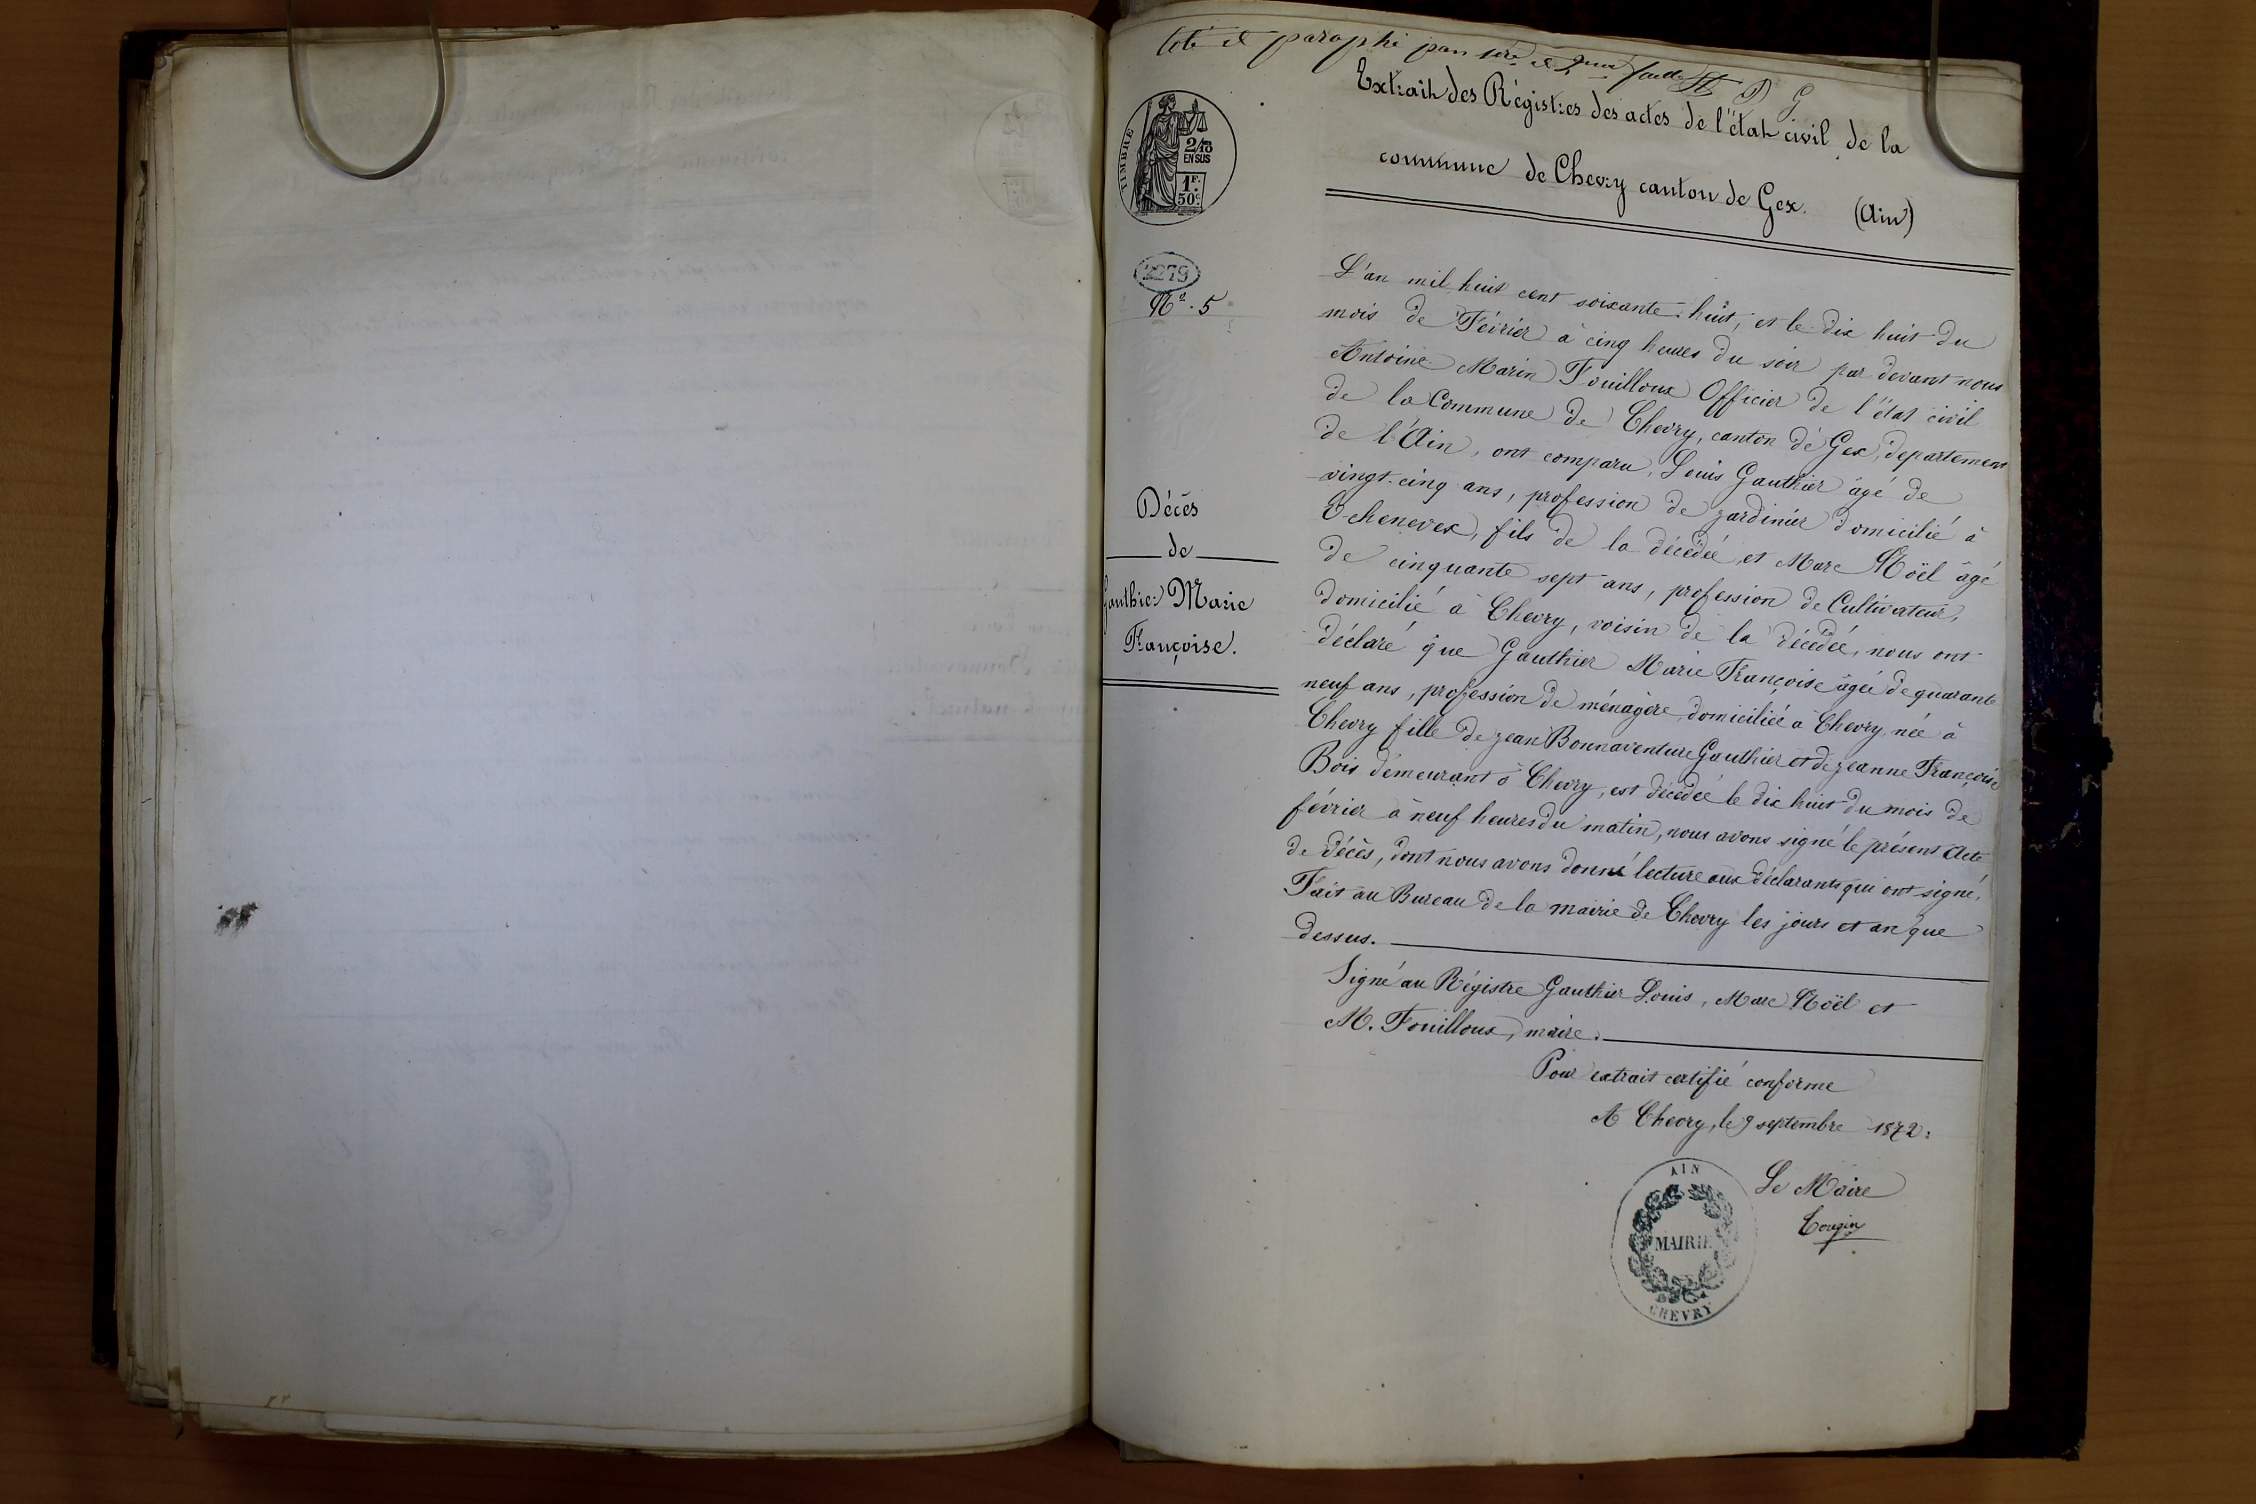 Coté et paraphé par 1ère et 2me
Extrait des Régistres des actes de l'état civil de la
commune de Chevry canton de Gex. (Ain)
TIMBRE
2/10
EN SUS
1F.
50c.
2279
No. 5
Décès
de
Gauthier Marie
Françoise.
L'an mil huit cent soixante-huit, et le dix huit du
mois de Février à cinq heures du soir par devant nous
Antoine Marin Fouilloux Officier de l'état civil
de la Commune de Chevry, canton de Gex, departement
de l'Ain, ont comparu, Louis Gauthier âgé de
vingt-cinq ans, profession de jardinier domicilié à
Echenevex, fils de la décédée, et Marc Noël âgé
de cinquante sept ans, profession de Cultivateur,
domicilié à Chevry, voisin de la décédée, nous ont
déclaré que Gauthier Marie Françoise âgée de quarante
neuf ans, profession de ménagère, domiciliée à Chevry née à
Chevry fille de jean Bonnaventure Gauthier et de jeanne Françoise
Bois demeurant à Chevry, est décédée le dix huit du mois de
février à neuf heures du matin, nous avons signé le présent Acte
de décès, dont nous avons donné lecture aux déclarants qui ont signé.
Fait au Bureau de la mairie de Chevry les jours et an que
dessus.
Signé au Régistre Gauthier Louis, Marc Noël et
M. Fouilloux, maire.
Pour extrait certifié conforme
A Chevry, le 9 septembre 1872.
Le Maire
Tougin
AIN
MAIRIE
CHEVRY